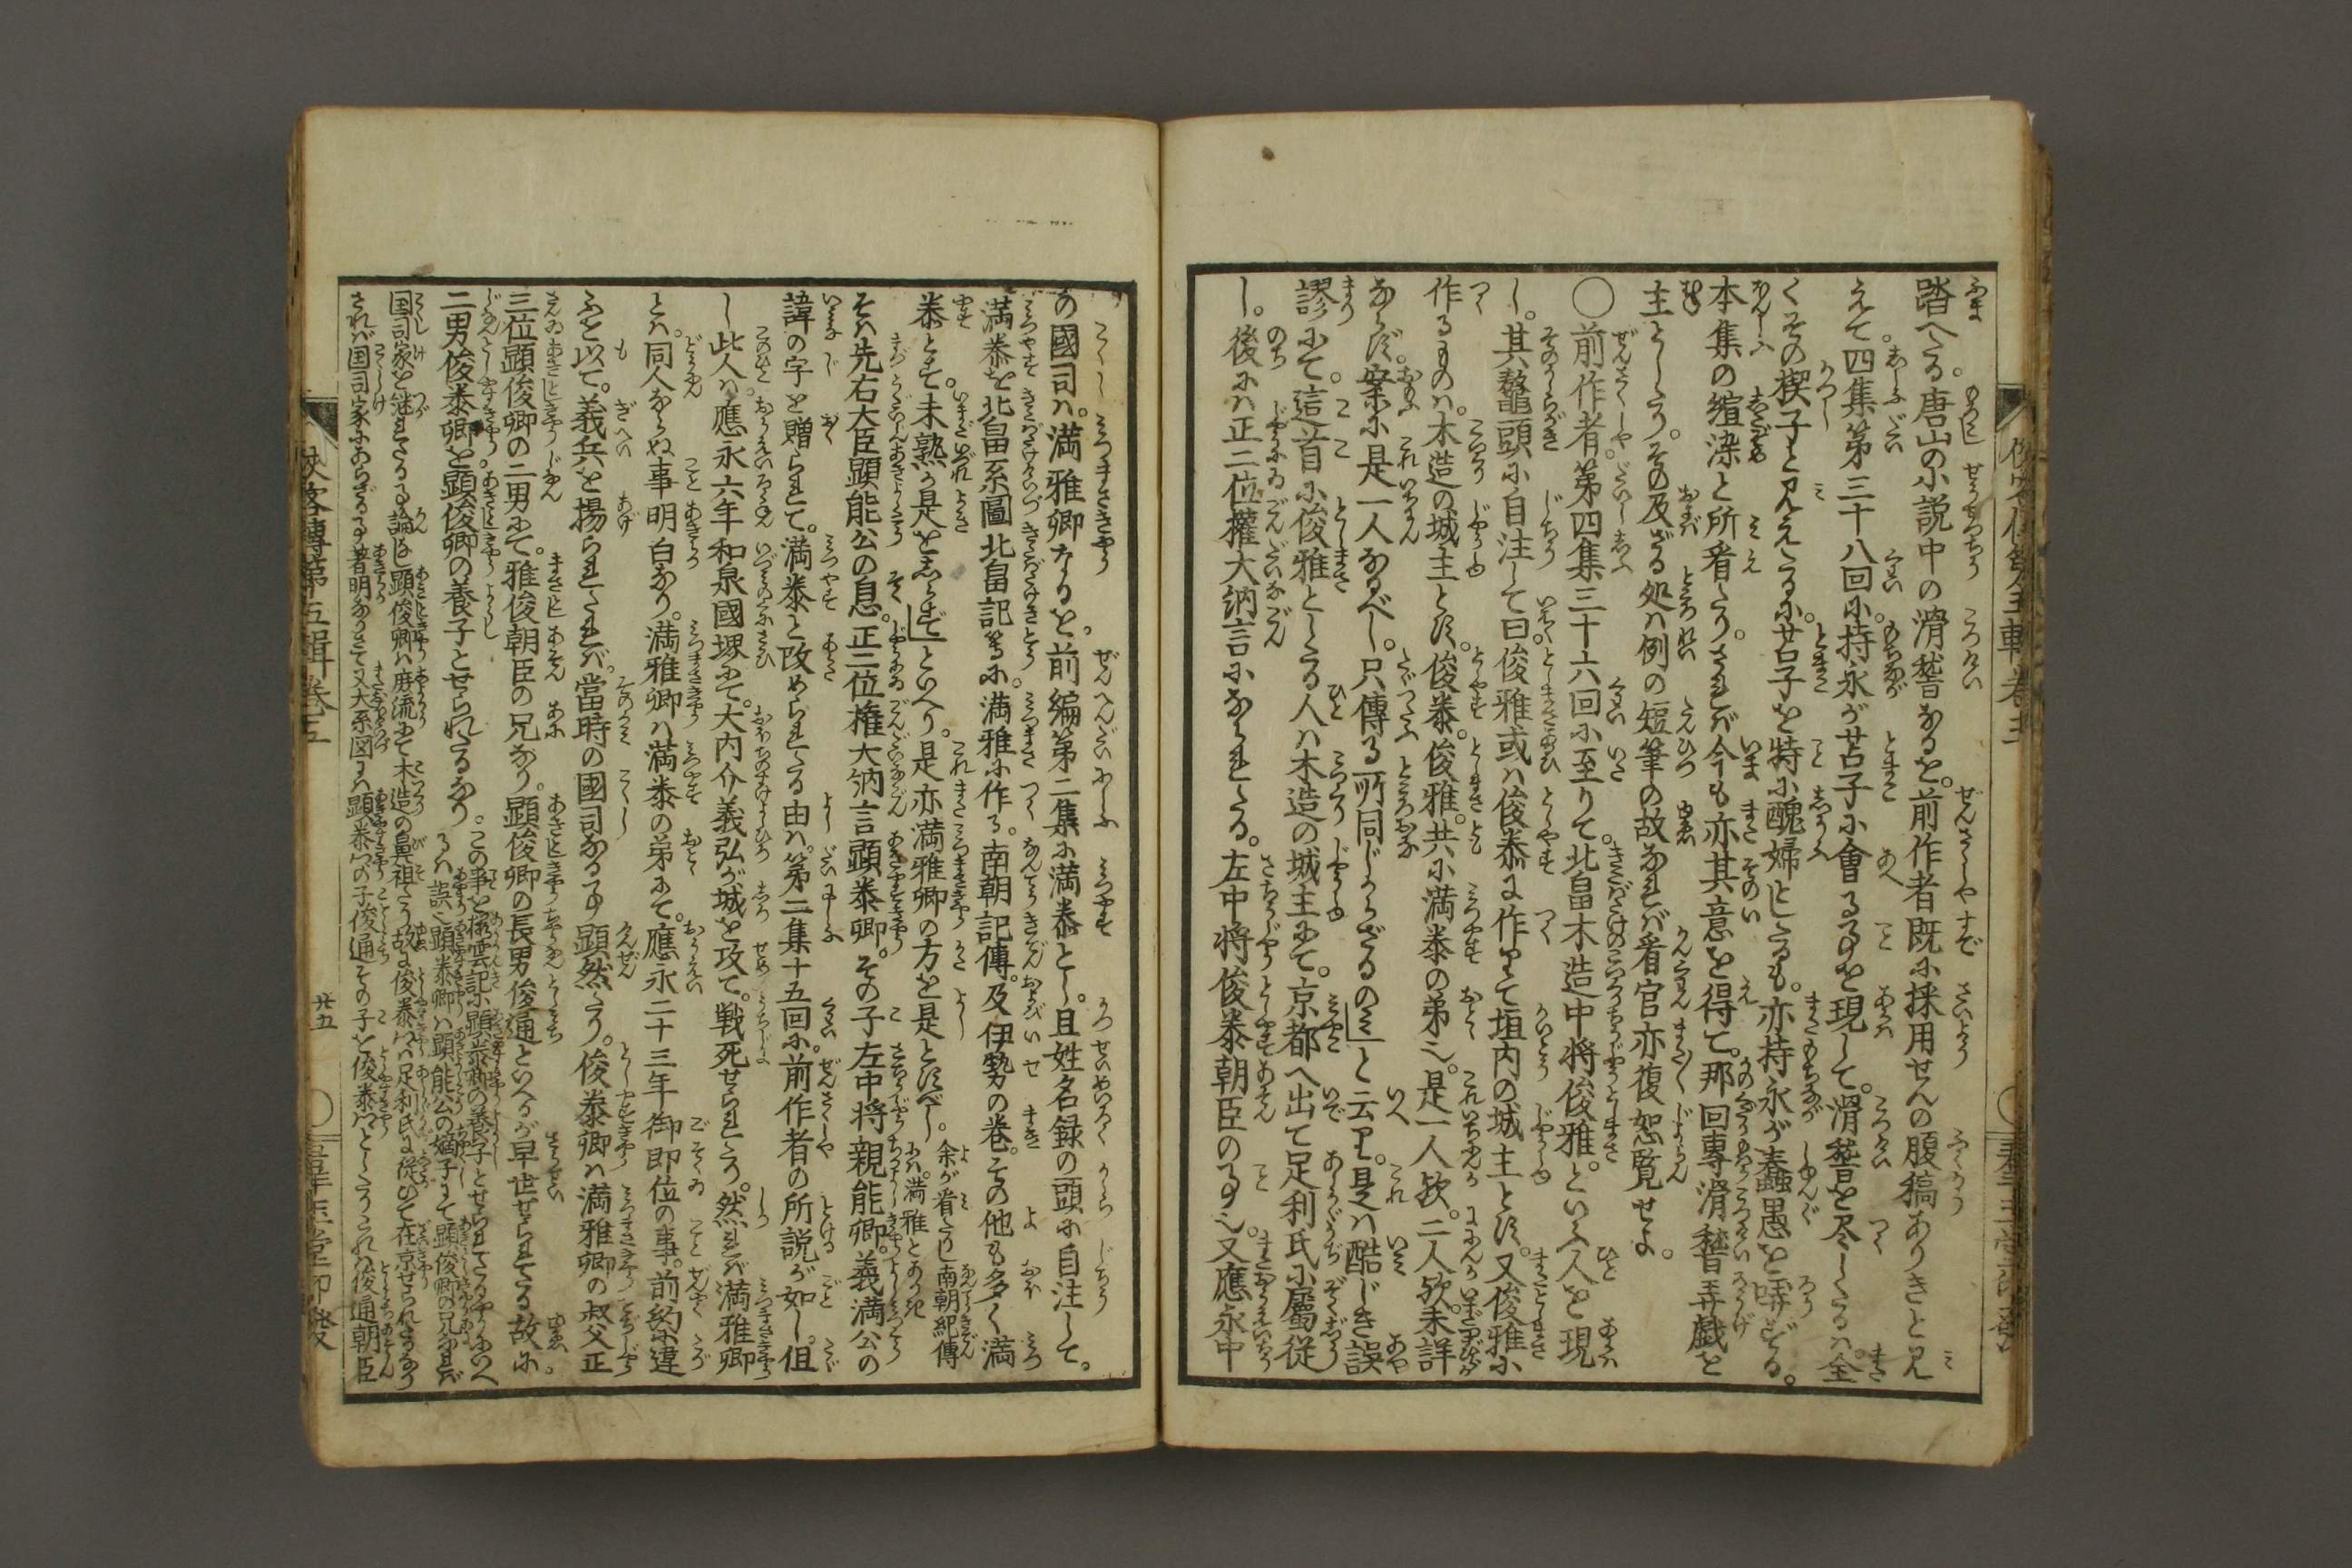 踏へたる唐山の小説中の滑稽なるを。前作者既に採用せんの腹稿ありきと見
えて。四集第三十八回に。持永が苫子に會る事を現して。滑稽を尽したるは。全
くその楔子と見えたるに。苫子を特に醜婦としたるも。亦持永が蠢愚を弄べる。
本集の縮染と所看たり。されば今も亦其意を得て。那回専滑稽弄戯を
主としたり。その及ざる処は例の短筆の故なれば看官亦復恕覧せよ。
〇前作者。第四集三十六回に至りて。北畠木造中将俊雅。といふ人を現
し。其鼇頭に自注して曰。俊雅或は俊泰に作りて垣内の城主とす。又俊雅に
作るものは。木造の城主とす。俊泰。俊雅。共に満泰の弟也。是一人歟。二人歟。未詳
ならず。案に是一人なるべし。只傳る所同じからざるのミ」と云り。是は酷じき誤
謬にて。這首に俊雅としたる人は木造の城主にて。京都へ出て足利氏に屬従
し。後には正二位權大納言になられたる。左中将俊泰朝臣の事也。又應永中
の國司は。満雅卿なるを。前編第二集に満泰とし。且姓名録の頭に自注して。
満泰を北畠系圖北畠記等に。満雅に作る。南朝記傳。及伊勢の巻。その他も多く満
泰とす。未熟か是をしらず」といへり。是亦満雅卿の方を是とすべし。余が看たりし南朝紀傳
には。満雅とあるき
そは先右大臣顕能公の息。正二位権大納言顕泰卿。その子左中将親能卿。義満公の
諱の字を贈られて。満泰と改められたる由は。第二集十五回に。前作者の所説が如し。但
し此人は。應永六年和泉國堺にて。大内介義弘が城を攻て。戦死せられたり。然れば満雅卿
とは。同人ならぬ事明白なり。満雅卿は満泰の弟にて。應永二十三年御即位の事。前約に違
ふを以て。義兵を揚られたれば。當時の國司なる事顕然たり。俊泰卿は満雅卿の叔父正
三位顕俊卿の二男にて。雅俊朝臣の兄なり。顕俊卿の長男俊通といへるが早世せられたる故に。
二男俊泰卿を顕俊卿の養子とせられたるなり。この事を櫻雲記に顕泰卿の養子とせられたるやうにいへ
るは誤也顕泰卿は顕能公の嫡子にて顕俊卿の兄なれば
国司家を継れたる事論なし顕俊卿は庶流にて木造の鼻祖たり故に俊泰は足利氏に従ひて在京せられたるなり
されば国司家にあらざる事著明なりきて又大系図には顕泰の子俊通その子を俊泰としたりこれは俊通朝臣
侠客傳第五輯巻五
廿五